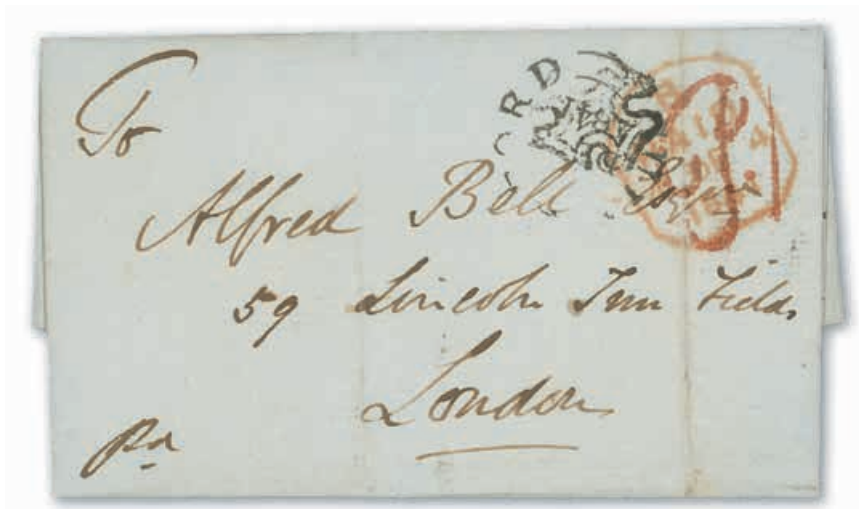 To
Alfred Bell Esqre
59 Lincoln Inn Fields
London
pd